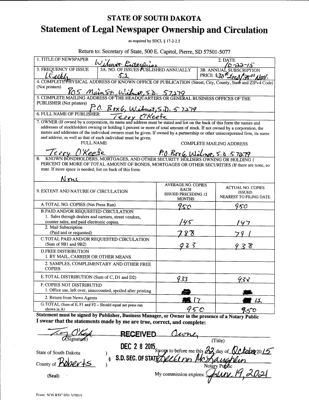 STATE OF SOUTH DAKOTA
Statement of Legal Newspaper Ownership and Circulation
as required by SDCL § 17-2-2.5
Return to: Secretary of State, 500 E. Capitol, Pierre, SD 57501-5077
1. TITLE OF NEWSPAPER Wilmot Enterprise
2. DATE 10-22-15
3. FREQUENCY OF ISSUE Weekly
3A. NO. OF ISSUES PUBLISHED ANNUALLY 52
3B. ANNUAL SUBSCRIPTION PRICE
4. COMPLETE PHYSICAL ADDRESS OF KNOWN OFFICE OF PUBLICATION (Street, City, County, State and ZIP+4 Code)
(Not printers) 805 Main St, Wilmot, S.D. 57279
5. COMPLETE MAILING ADDRESS OF THE HEADQUARTERS OR GENERAL BUSINESS OFFICES OF THE
PUBLISHER (Not printer) P.O. Box 6, Wilmot, S.D. 57279
6. FULL NAME OF PUBLISHER: Terry O'Keefe
7. OWNER (If owned by a corporation, its name and address must be stated and list on the back of this form the names and
addresses of stockholders owning or holding 1 percent or more of total amount of stock. If not owned by a corporation, the
names and addresses of the individual owners must be given. If owned by a partnership or other unincorporated firm, its name
and address, as well as that of each individual must be given.
FULL NAME COMPLETE MAILING ADDRESS
Terry O'Keefe P.O. Box 6, Wilmot, S.D. 57279
8. KNOWN BONDHOLDERS, MORTGAGES, AND OTHER SECURITY HOLDERS OWNING OR HOLDING 1
PERCENT OR MORE OF TOTAL AMOUNT OF BONDS, MORTGAGES OR OTHER SECURITIES (If there are none, so
state. If more space is needed, list on back of this form.
None
9. EXTENT AND NATURE OF CIRCULATION
AVERAGE NO. COPIES EACH ISSUED PRECEDING 12 MONTHS
ACTUAL NO. COPIES ISSUED NEAREST TO FILING DATE
A. TOTAL NO. COPIES (Net Press Run) 950 950
B. PAID AND/OR REQUESTED CIRCULATION
1. Sales through dealers and carriers, street vendors,
counter sales, and paid electronic copies. 145 147
2. Mail Subscription
(Paid and or requested) 788 791
C. TOTAL PAID AND/OR REQUESTED CIRCULATION
(Sum of 9B1 and 9B2) 933 938
D. FREE DISTRIBUTION
1. BY MAIL, CARRIER OR OTHER MEANS
2. SAMPLES, COMPLIMENTARY AND OTHER FREE
COPIES
E. TOTAL DISTRIBUTION (Sum of C, D1 and D2) 933 938
F. COPIES NOT DISTRIBUTED
1. Office use, left over, unaccounted, spoiled after printing
2. Return from News Agents 17 12
G. TOTAL (Sum of E, F1 and F2 – Should equal net press run
shown in A) 950 950
Statement must be signed by Publisher, Business Manager, or Owner in the presence of a Notary Public
I swear that the statements made by me are true, correct, and complete:
Owner
(Signature) (Title)
RECEIVED
DEC 28 2015
S.D. SEC. OF STATE
State of South Dakota )
§
County of Roberts )
Sworn to before me this 22 day of October 2015
Notary Public
(Seal)
My commission expires: June 19, 2021